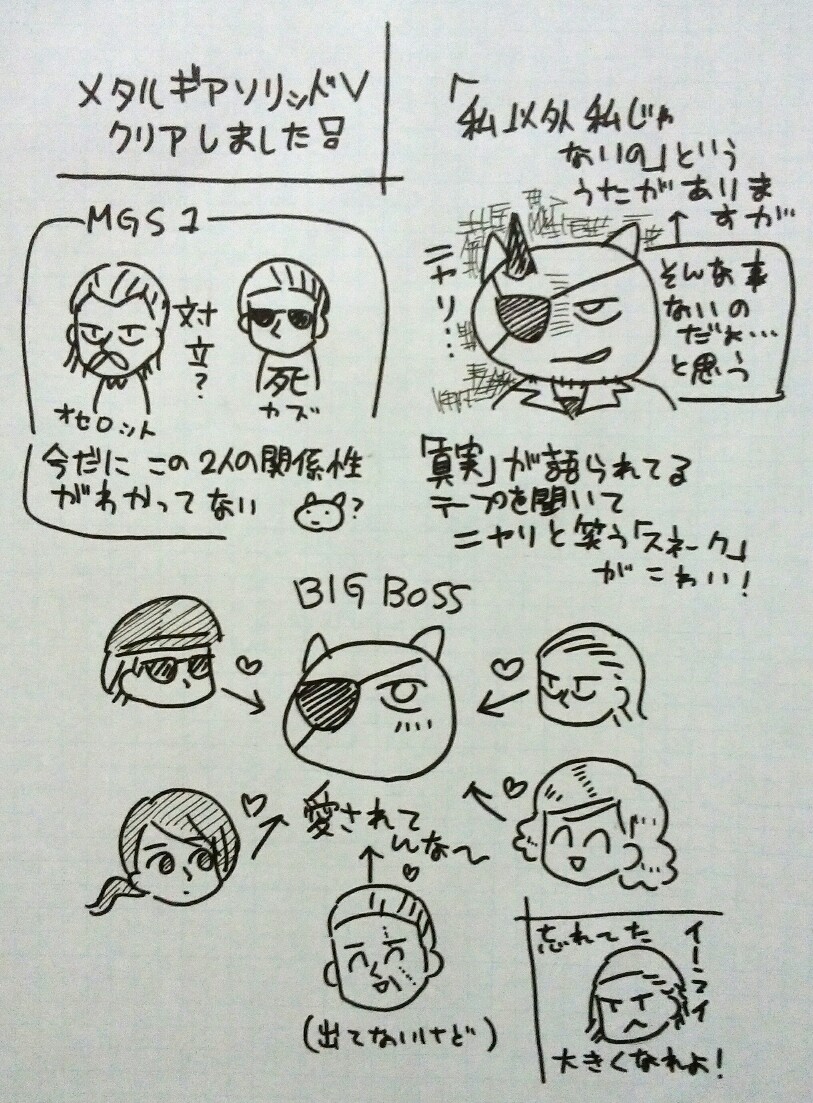 メタルギアソリッドV
クリアしました!!
MGS1
対立?
オセロット
死
カズ
今だにこの2人の関係性
がわかってない
?
「私以外私じゃ
ないの」という
うたがありま
すが
そんな事
ないの
だよ…
と思う
ニヤリ…
「真実」が語られてる
テープを聞いて
ニヤリと笑う「スネーク」
がこわい!
BIG BOSS
愛されて
んな〜
(出てないけど)
忘れてた
イーライ
大きくなれよ!